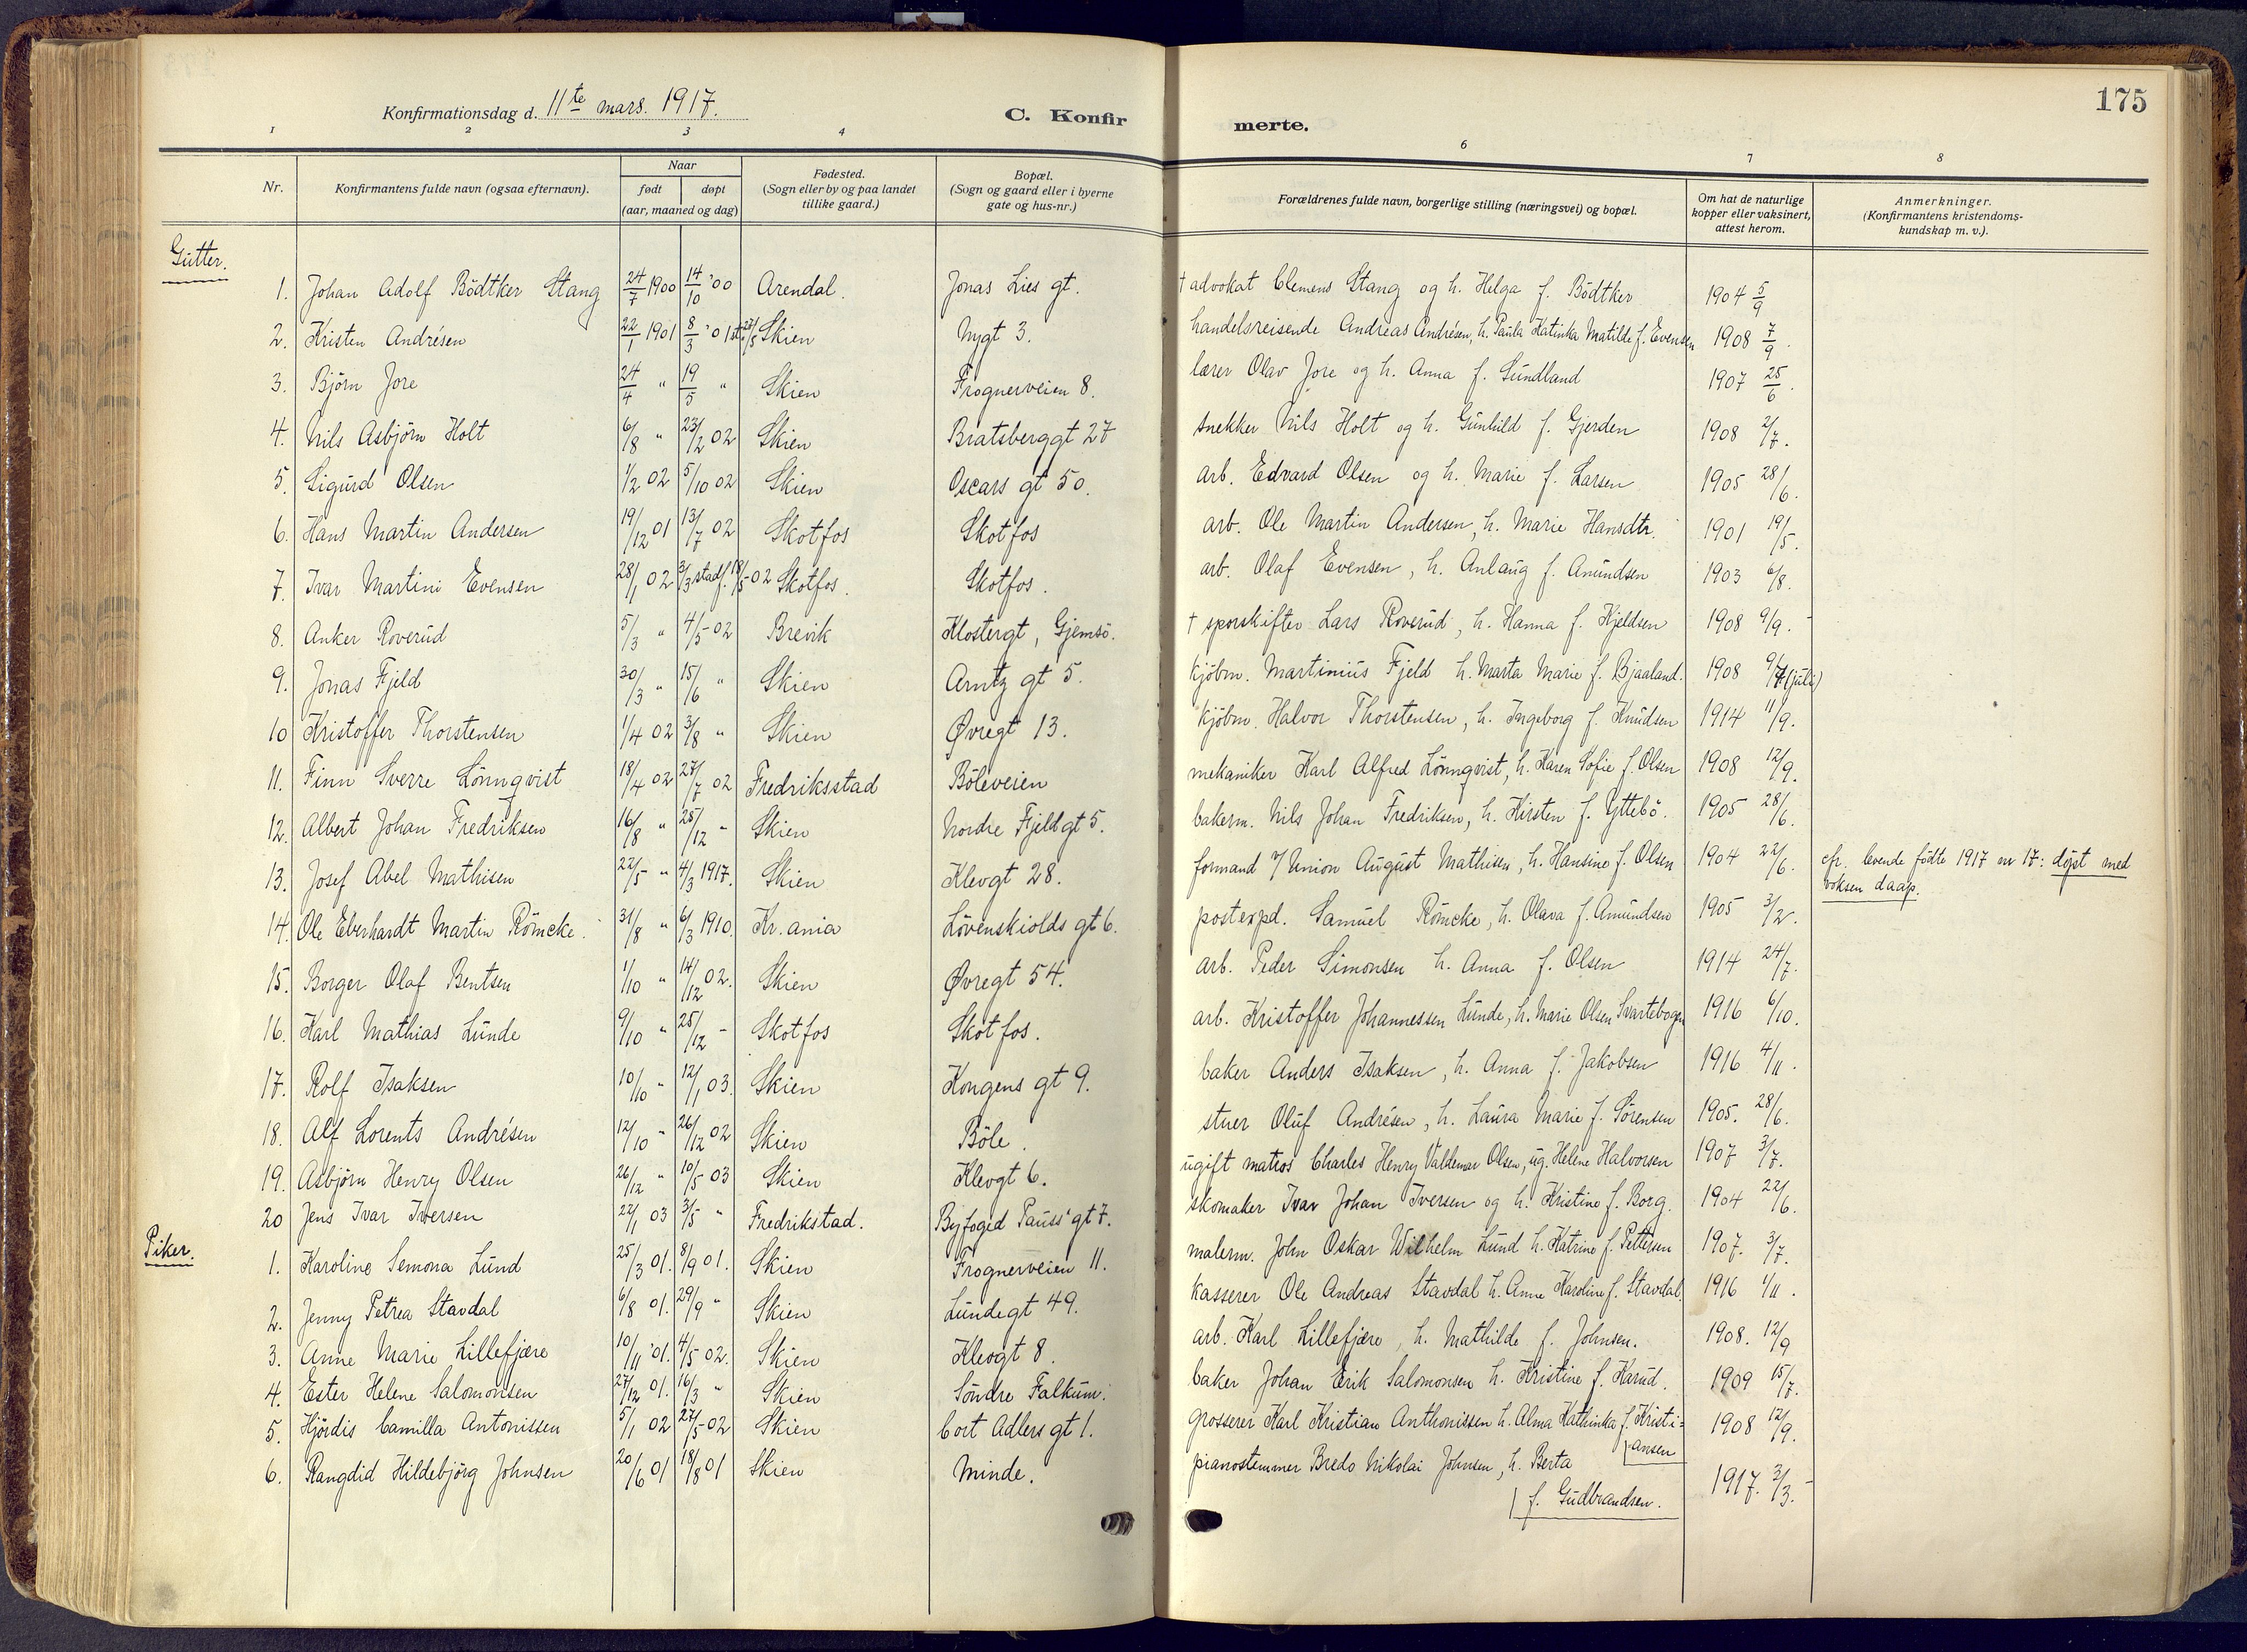 175
Konfirmationsdag d. 11te mars. 1917.
C. Konfirmerte.
1 2 3 4 6 7 8
Nr. Konfirmantens fulde navn (ogsaa efternavn). Naar født døpt (aar, maaned og dag) Fødested. (Sogn eller by og paa landet tillike gaard.) Bopæl. (Sogn og gaard eller i byerne gate og hus-nr.) Forældrenes fulde navn, borgerlige stilling (næringsvei) og bopæl. Om hat de naturlige kopper eller vaksinert, attest herom. Anmerkninger. (Konfirmantens kristendomskundskap m. v.).
Gutter.
1. Johan Adolf Bödtker Stang 24/7 1900 14/10 '00 Arendal. Jonas Lies gt. † advokat Clemens Stang og h. Helga f. Bödtker 1904 5/9
2. Kristen Andrésen 22/1 1901 8/3 '01 st. 27/5 Skien Nygt 3. handelsreisende Andreas Andrésen, h. Paula Katinka Matilde f. Evensen 1908 7/9.
3. Bjørn Jore 24/4 " 19/5 " Skien Frognerveien 8. lærer Olav Jore og h. Anna f. Sundland 1907 25/6.
4. Nils Asbjörn Holt 6/8 " 23/2 02 Skien Bratsberggt 27 snekker Nils Holt og h. Gunhild f. Gjerden 1908 2/7.
5. Sigurd Olsen 1/2 02 5/10 02 Skien Oscars gt 50. arb. Edvard Olsen og h. Marie f. Larsen 1905 28/6.
6. Hans Martin Andersen 19/12 01 13/7 02 Skotfos Skotfos arb. Ole Martin Andersen, h. Marie Hansdtr. 1901 19/5.
7. Ivar Martini Evensen 28/1 02 3/3 stadf. 18/5-02 Skotfos. Skotfos. arb. Olaf Evensen, h. Anlaug f. Amundsen 1903 6/8.
8. Anker Roverud 5/3 " 4/5-02 Brevik Klostergt, Gjemsö. † sporskifter Lars Roverud, h. Hanna f. Kjeldsen 1908 9/9.
9. Jonas Fjeld 30/3 " 15/6 " Skien Arntz gt 5. kjöbm. Martinius Fjeld h. Marta Marie f. Bjaaland. 1908 9/7 (juli)
10 Kristoffer Thorstensen 1/4 02 3/8 " Skien Øvregt 13. kjöbm. Halvor Thorstensen, h. Ingeborg f. Knudsen 1914 11/9.
11. Finn Sverre Lönnqvist 18/4 02 27/7 02 Fredriksstad Böleveien mekaniker Karl Alfred Lönnqvist, h. Karen Sofie f. Olsen 1908 12/9.
12. Albert Johan Fredriksen 16/8 " 25/12 " Skien Nordre Fjeldgt 5. bakerm. Nils Johan Fredriksen, h. Kirsten f. Yttebö. 1905 28/6.
13. Josef Abel Mathisen 22/5 " 4/3 1917. Skien Klevgt 28. formand v/ Union August Mathisen, h. Hansine f. Olsen 1904 22/6. cfr. levende födte 1917 nr 17: döpt med voksen daap.
14. Ole Eberhardt Martin Römcke. 31/8 " 6/3 1910. Kr.ania Lövenskiolds gt 6. postexpd. Samuel Römcke, h. Olava f. Amundsen 1905 3/2.
15. Borger Olaf Bentsen 1/10 " 14/12 02. Skien Øvregt 54. arb. Peder Simonsen h. Anna f. Olsen 1914 24/7.
16. Karl Mathias Lunde 9/10 " 25/12 - Skotfos Skotfos. arb. Kristoffer Johannessen Lunde, h. Marie Olsen Svartebogen 1916 6/10.
17. Rolf Isaksen 10/10 " 12/1 03. Skien Kongens gt 9. baker Anders Isaksen, h. Anna f. Jakobsen 1916 4/11.
18. Alf Lorents Andrésen 12/10 " 26/12 02 Skien Böle. stuer Oluf Andrésen, h. Laura Marie f. Sörensen 1905. 28/6.
19. Asbjörn Henry Olsen 26/12 " 10/5 03 Skien Klevgt 6. ugift matros Charles Henry Valdemar Olsen, ug. Helene Halvorsen 1907 3/7.
20 Jens Ivar Iversen 22/1 03 3/5 " Fredrikstad. Byfoged Pauss' gt 7. skomaker Ivar Johan Iversen og h. Kristine f. Borg. 1904 22/6.
Piker.
1. Karoline Semona Lund 25/3 01. 8/9 01. Skien Frognerveien 11. malerm. John Oskar Wilhelm Lund h. Katrine f. Pettersen 1907. 3/7.
2. Jenny Petrea Stavdal 6/8 01. 29/9 " Skien Lundegt 49. kasserer Ole Andreas Stavdal h. Anne Karoline f. Stavdal. 1916 1/11.
3. Anne Marie Lillefjære 10/11 '01. 4/5 02. Skien Klevgt 8. arb. Karl Lillefjære, h. Mathilde f. Johnsen. 1908. 12/9
4. Ester Helene Salomonsen 27/12 01. 16/3 " Skien Söndre Falkum. baker Johan Erik Salomonsen h. Kristine f. Karud. 1909 15/7.
5. Hjördis Camilla Antonissen 5/1 02 27/5-02 Skien Cort Adlers gt 1. grosserer Karl Kristian Anthonissen h. Alma Kathinka f. Kristiansen 1908 12/9.
6. Rangdid Hildebjörg Johnsen 20/6 01 18/8 01 Skien Minde. pianostemmer Bredo Nikolai Johnsen, h. Berta f. Gudbrandsen. 1917. 3/3.